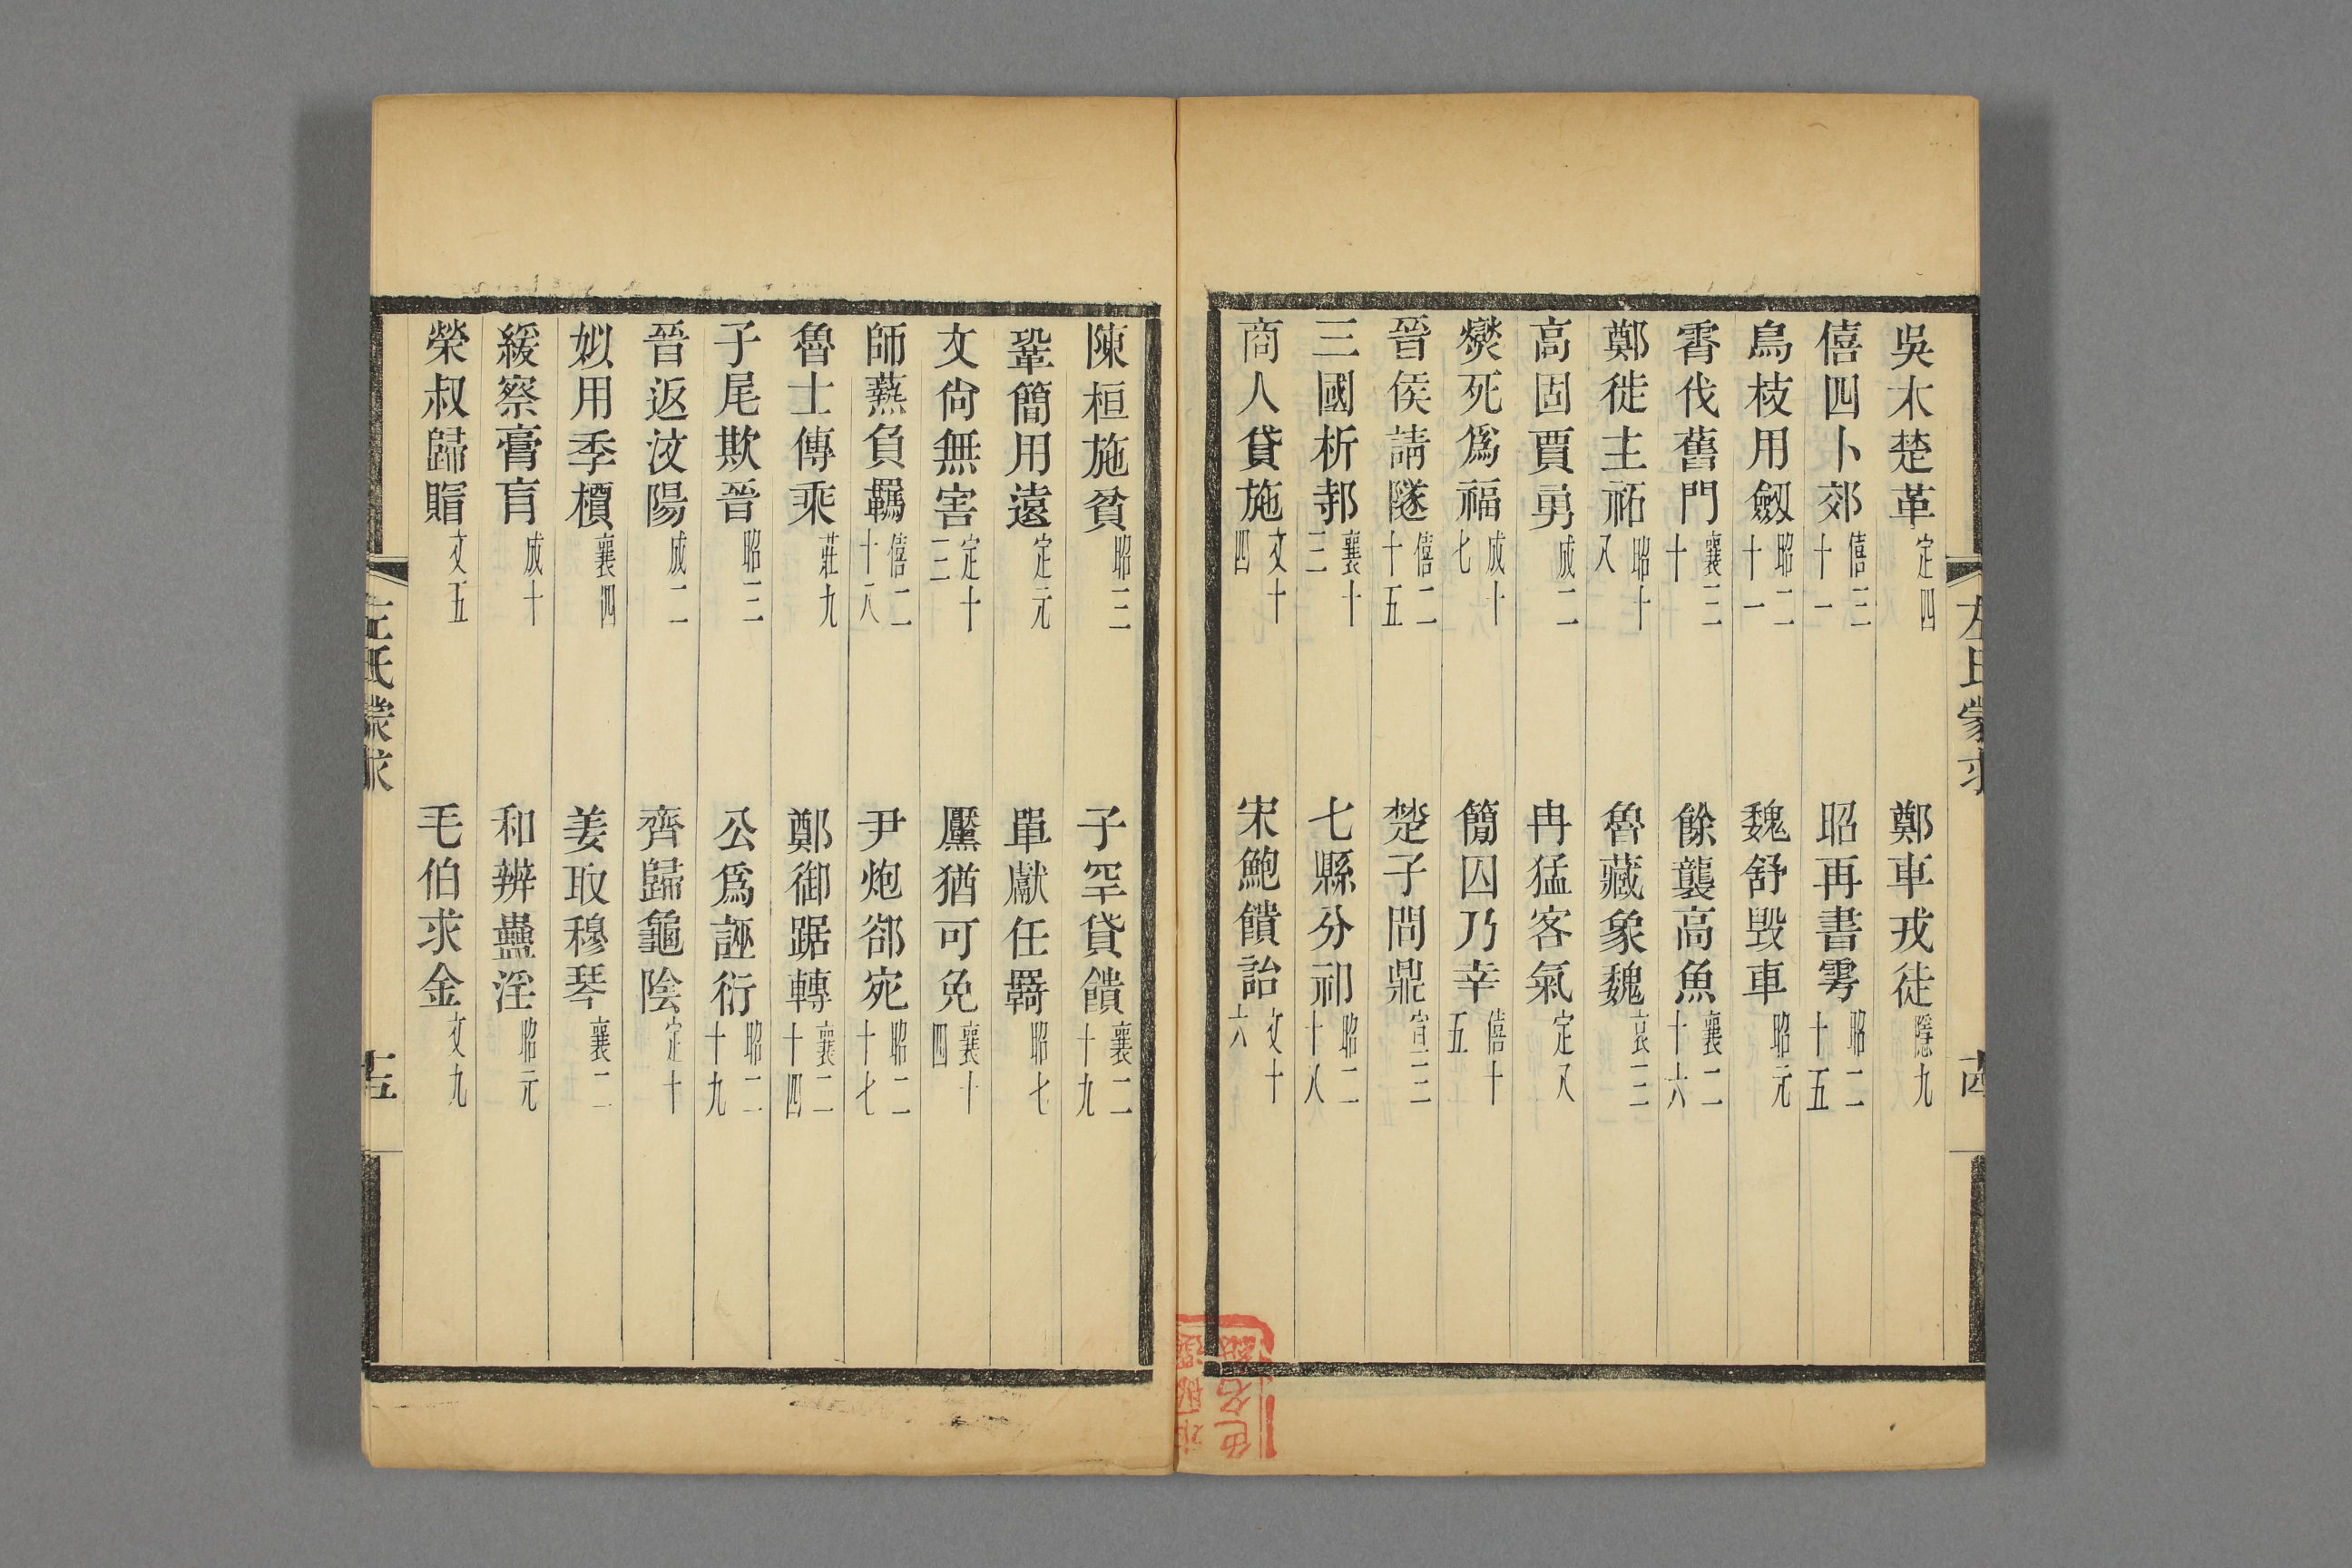 吳木楚革定四 鄭車戎徒隱九
僖四卜郊僖三十一 昭再書雩昭二十五
烏枝用劔昭二十一 魏舒毀車昭元
霄伐舊門襄三十 餘襲高魚襄二十六
鄭徙主祏昭十八 魯藏象魏哀三
高固賈勇成二 冉猛客氣定八
爕死爲福成十七 簡囚乃幸僖十五
晉侯請隧僖二十五 楚子問鼎宣三
三國析邿襄十三 七縣分祁昭二十八
商人貸施文十四 宋鮑饋詒文十六
陳桓施貧昭三 子罕貸饋襄二十九
鞏簡用遠定元 單獻任羇昭七
文尙無害定十三 黶猶可免襄十四
師爇負羈僖二十八 尹炮郤宛昭二十七
魯士傳乘莊九 鄭御踞轉襄二十四
子尾欺晉昭三 公爲誣衍昭二十九
晉返汶陽成二 齊歸龜陰定十
姒用季櫝襄四 姜取穆琴襄二
緩察膏肓成十 和辨蠱淫昭元
榮叔歸賵文五 毛伯求金文九
左氏蒙求 十四
左氏蒙求 十五